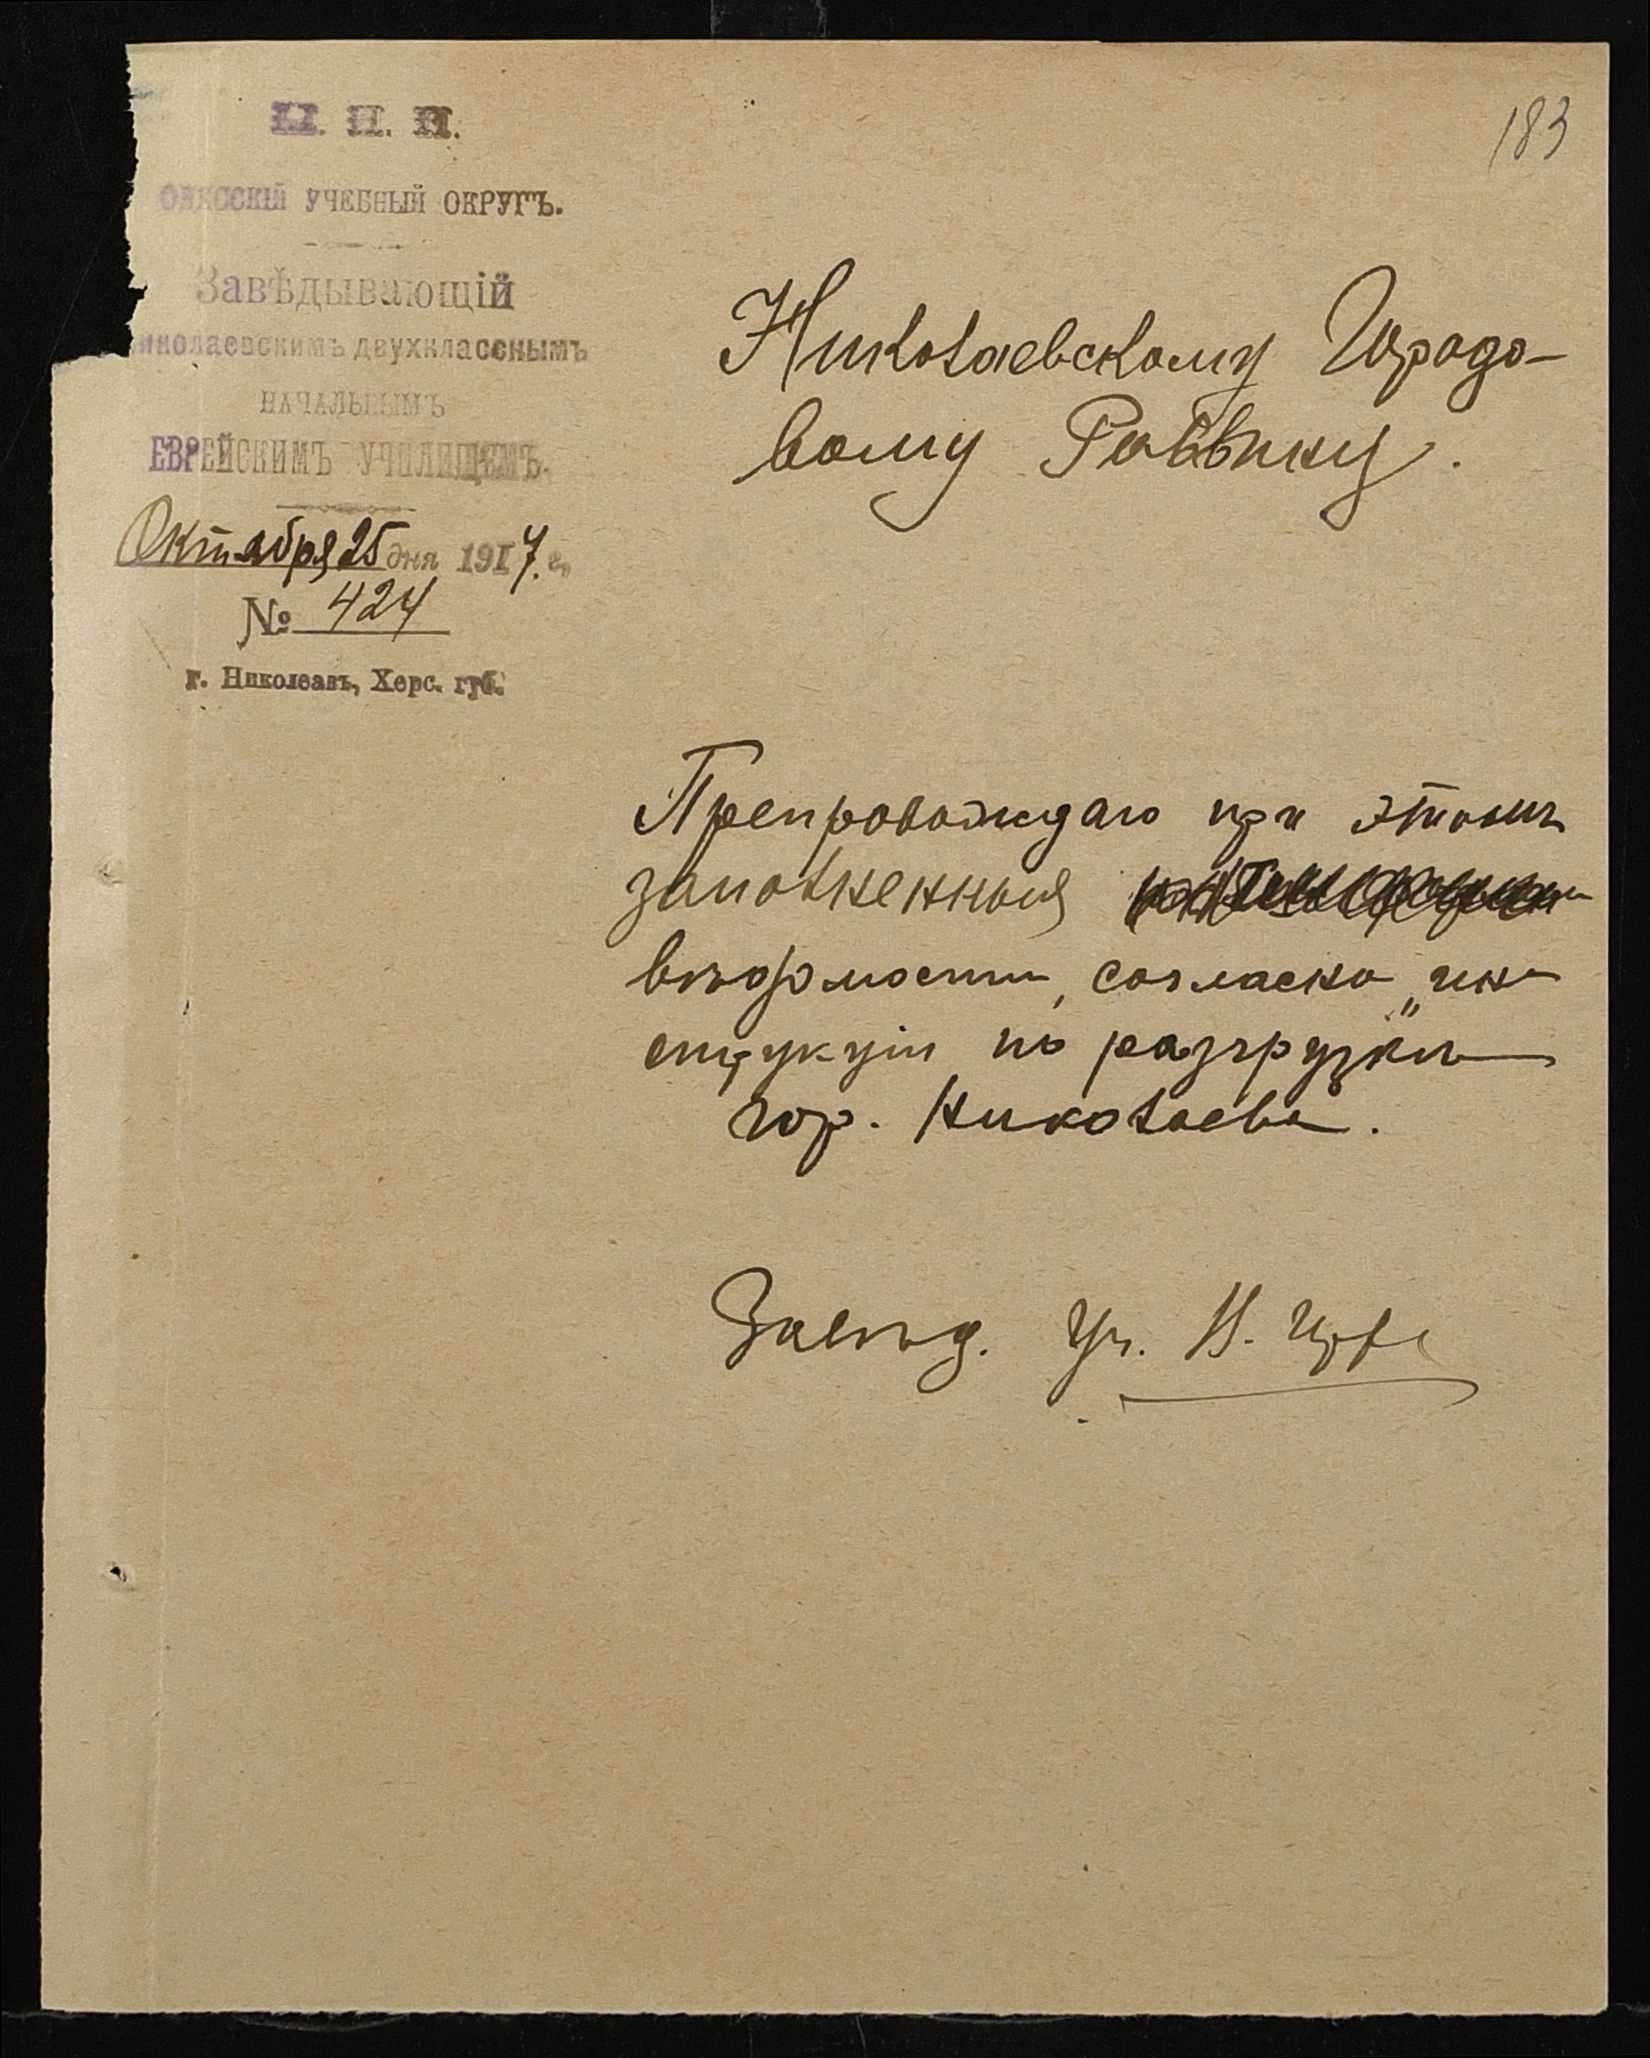 183
М. Н. П.
ОДЕССКІЙ УЧЕБНЫЙ ОКРУГЪ.
Завѣдывающій
николаевскимъ двухкласснымъ
НАЧАЛЬНЫМЪ
ЕВРЕЙСКИМЪ УЧИЛИЩЕМЪ.
Октября 25 дня 1917 г.
№ 424
г. Николеавъ, Херс. губ.
Николаевскому Городо-
вому Раввину.
Препровождаю при этомъ
заполненныя
вѣдомости, согласно „ин
струкціи по разгрузкѣ"
гор. Николаева.
Завѣд. Уч. И.